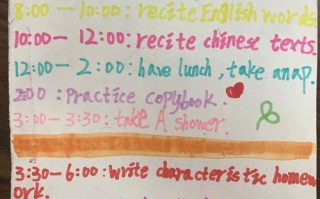 8:00 — 10:00 : recite English words
10:00 — 12:00 : recite chinese texts.
12:00 — 2:00 : have lunch , take a nap.
2:00 : Practice copybook.
3:00 — 3:30 : take A shower.
3:30 — 6:00 : write characteristic homew
ork.